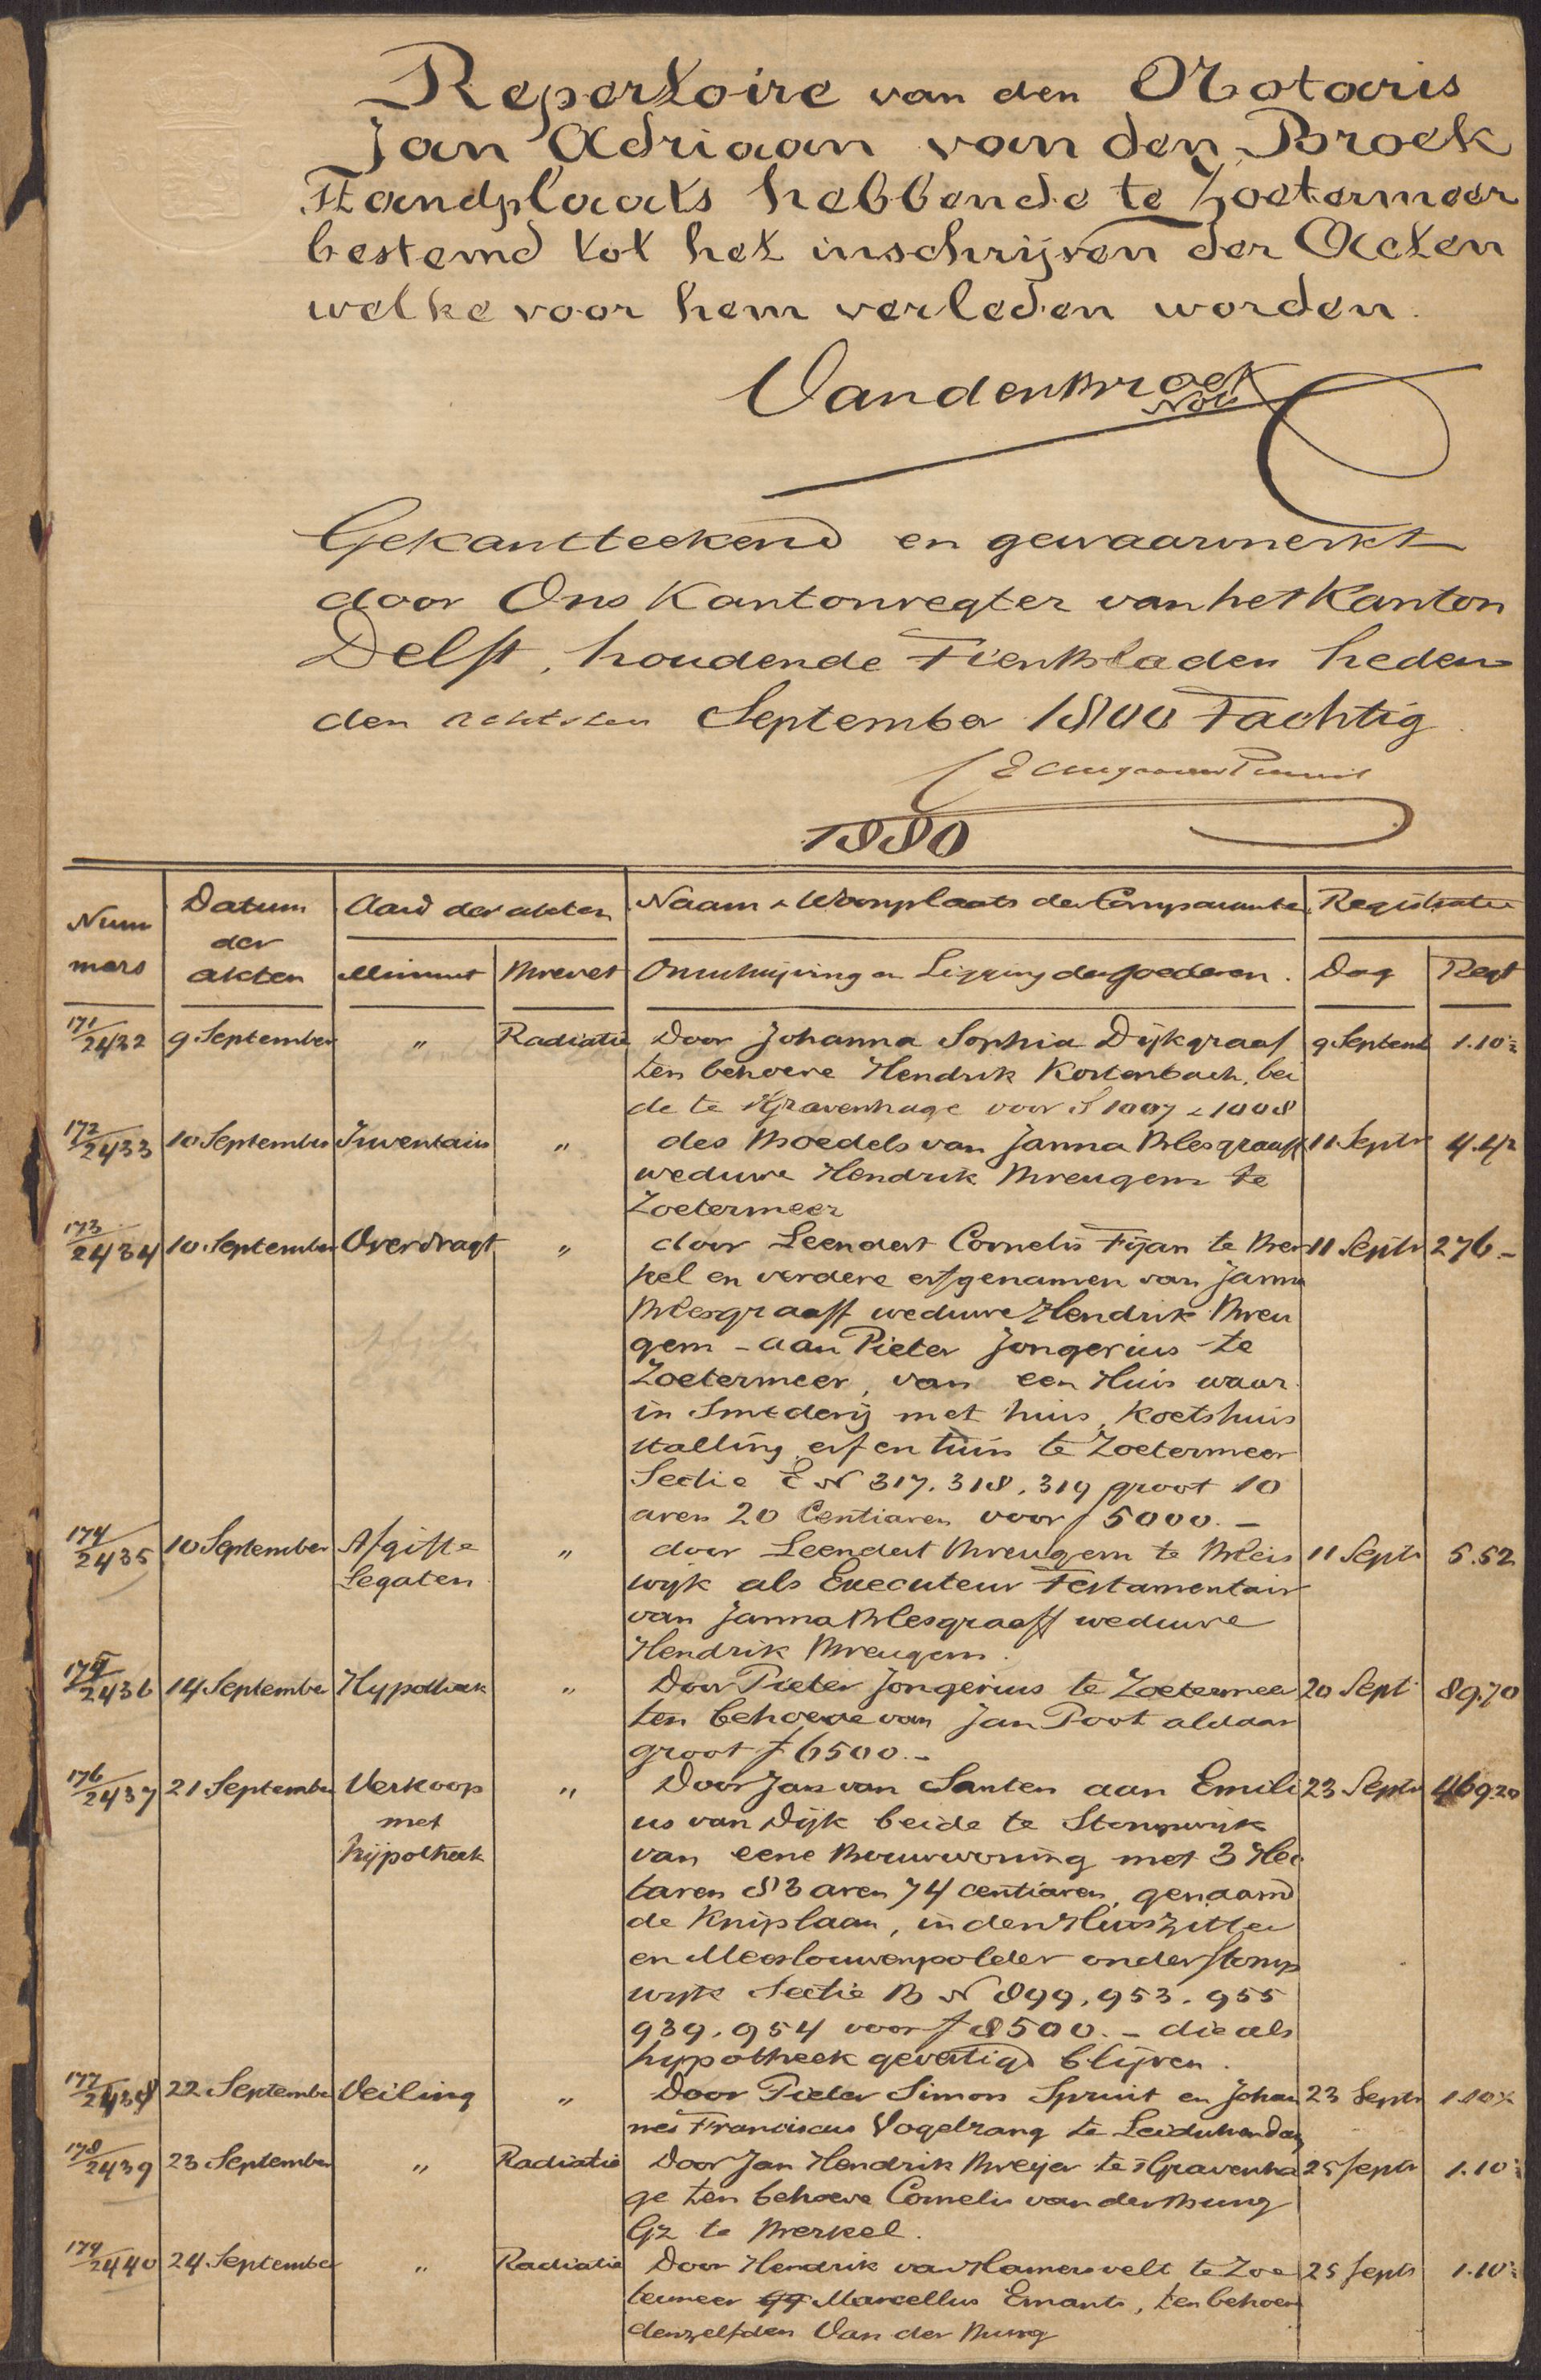 Repertoire van den Notaris
Jan Adriaan van den Broek
Standplaats hebbende te Zoetermeer
bestemd tot het inschrijven der Acten
welke voor hem verleden worden.
VandenBroek
Not
Gekantteekend en gewaarmerkt
door Ons Kantonregter van het Kanton
Delft, houdende Tien bladen heden
den achtsten September 1800 Tachtig.
1880
Nummers | Datum der akten | Aard der akten | Naam & Woonplaats der Comparanten | Registratie
Minuut | Brevet | Omschrijving en Ligging der goederen. | Dag | Regt
171/2432 | 9 September | " | Radiatie | Door Johanna Sophia Dijkgraaf | 9 Septemb | 1.10½
ten behoeve Hendrik Kortenbach, bei
de te 's Gravenhage voor f 1007 & 1008
172/2433 | 10 September | Inventaris | " | des Boedels van Janna Blesgraaff | 11 Septr | 4.42
weduwe Hendrik Breugem te
Zoetermeer
173/2434 | 10 September | Overdragt | " | door Leendert Cornelis Fijan te Ber | 11 Septr | 276.-
kel en verdere erfgenamen van Janna
Blesgraaff weduwe Hendrik Breu
gem - aan Pieter Jongerius te
Zoetermeer, van een Huis waar
in Smederij met huis, Koetshuis
stalling erf en tuin te Zoetermeer
Sectie E N 317. 318. 319 groot 10
aren 20 Centiaren voor f 5000.-
174/2435 | 10 September | Afgifte | " | door Leendert Breugem te Bleis | 11 Septr | 5.52
Legaten | wijk als Executeur Testamentair
van Janna Blesgraaff weduwe
Hendrik Breugem.
175/2436 | 14 September | Hypotheek | " | Door Pieter Jongerius te Zoetermeer | 20 Sept | 89.70
ten behoeve van Jan Poot aldaar
groot f 6500.-
176/2437 | 21 September | Verkoop | " | Door Jan van Santen aan Emili | 23 Septr | 469.20
met | us van Dijk beide te Stompwijk
hijpotheek | van eene Bouwwoning met 3 Hec
taren 83 aren 74 centiaren, genaamd
de Kniplaan, in den Huiszitter
en Meeslouwenpolder onder Stomp
wijk Sectie B N 899. 953. 955
939. 954 voor f 8500.- die als
hypotheek gevestigd blijven.
177/2438 | 22 September | Veiling | " | Door Pieter Simon Spruit en Johan | 23 Septr | 1.10½
nes Franciscus Vogelzang te Leidschendam
178/2439 | 23 September | " | Radiatie | Door Jan Hendrik Breijer te 's Gravenha | 25 Septr | 1.10½
ge ten behoeve Cornelis van der Burg
Gz te Berkel.
179/2440 | 24 September | " | Radiatie | Door Hendrik van Hamersvelt te Zoe | 25 Septr | 1.10½
termeer qq Marcellus Emants, ten behoeve
denzelfden Van der Burg